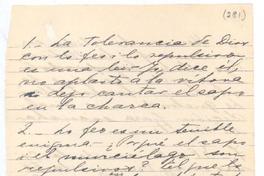 (281)
1.- La Tolerancia de Dios
con lo feo y lo repulsivo
es una ley. Ya dice él
no aplasté a la víbora
dejo cantar el sapo
en la charca.
2.- Lo feo es un terrible
enigma. ¿Por qué el sapo
i el murciélago son
repulsivos? ¿El que la